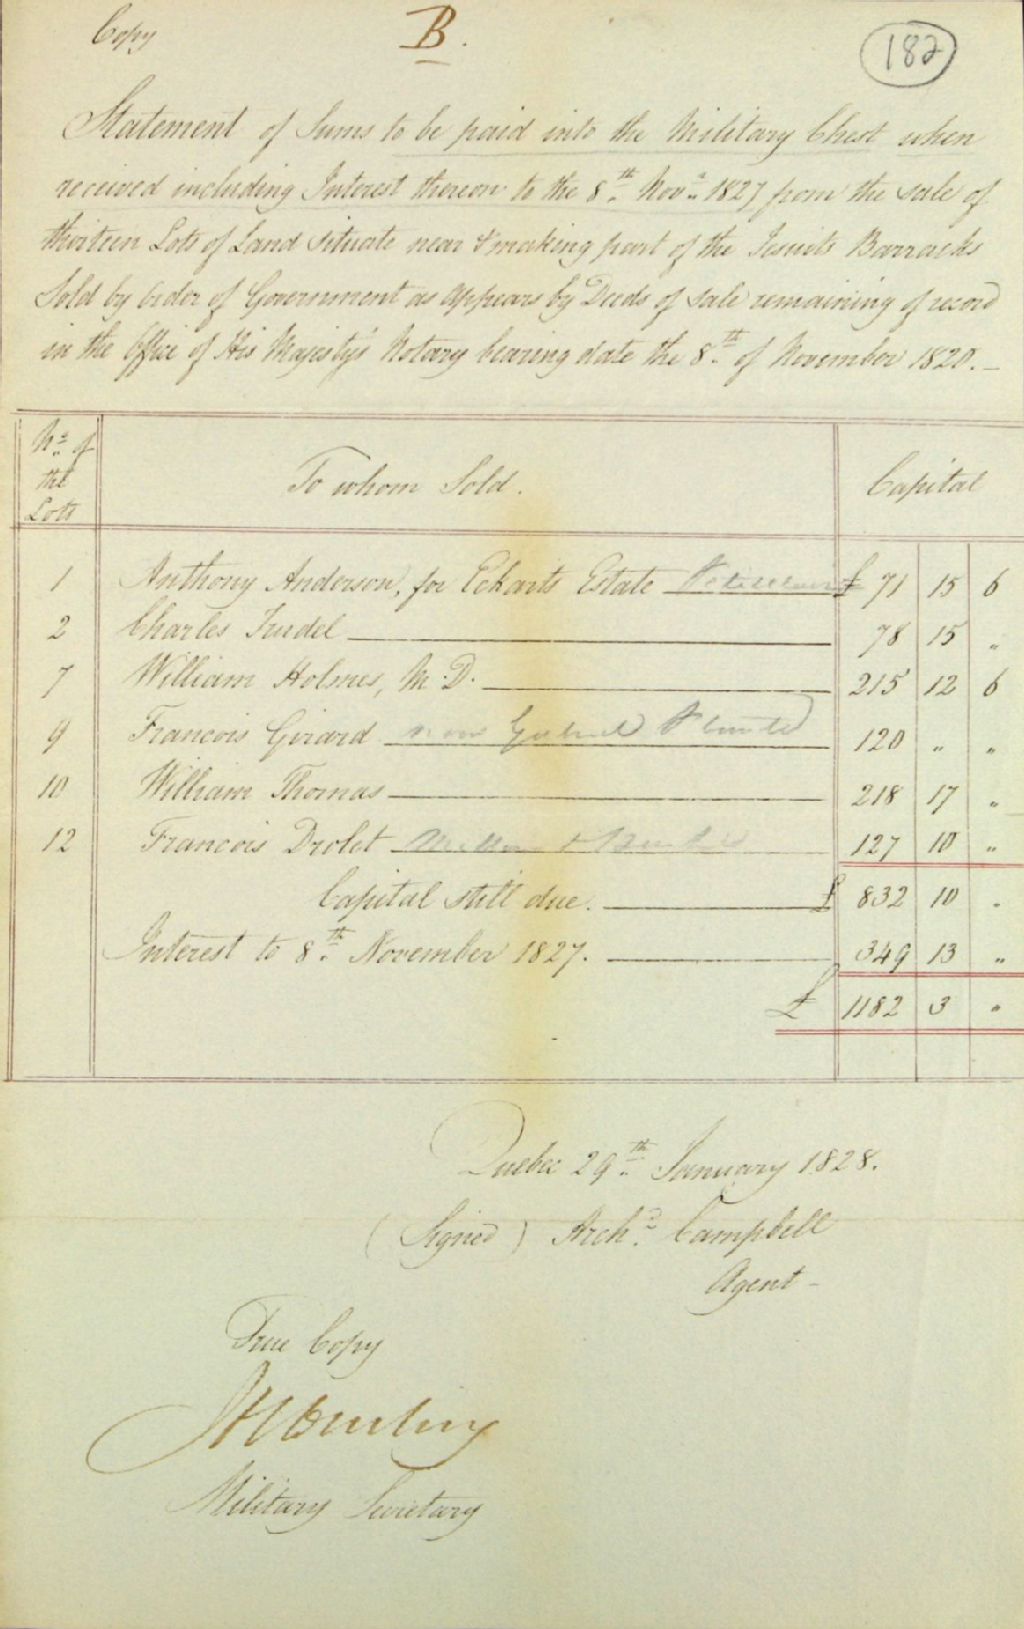 Copy
B.
182
Statement of Sums to be paid into the Military Chest when
received including Interest thereon to the 8th Novr. 1827 from the sale of
thirteen Lots of Land situate near & making part of the Jesuits Barracks
Sold by Order of Government as appears by Deeds of sale remaining of record
in the Office of His Majesty's Notary bearing date the 8th of November 1820.
No. of the Lots To whom Sold. Capital
1 Anthony Anderson, for Eckarts Estate £ 71 15 6
2 Charles Trudel 78 15 "
7 William Holmes, M.D. 215 12 6
9 Francois Girard now 120 " "
10 William Thomas 218 17 "
12 Francois Drolet 127 10 "
Capital still due. £ 832 10 "
Interest to 8th November 1827. 349 13 "
£ 1182 3 "
Quebec 29th January 1828.
(Signed) Archd. Campbell
Agent
True Copy
Military Secretary